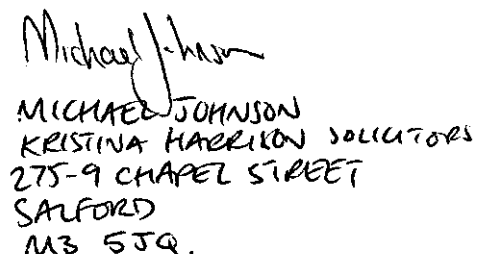 Michael Johnson
MICHAEL JOHNSON
KRISTINA HARRISON SOLICITORS
275-9 CHAPEL STREET
SALFORD
M3 5JQ.